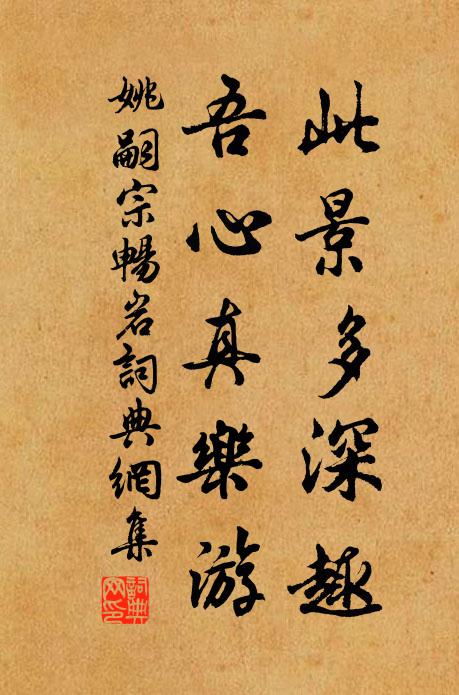 此景多深趣
吾心真樂游
姚嗣宗暢岩詞典網集
詞典網印